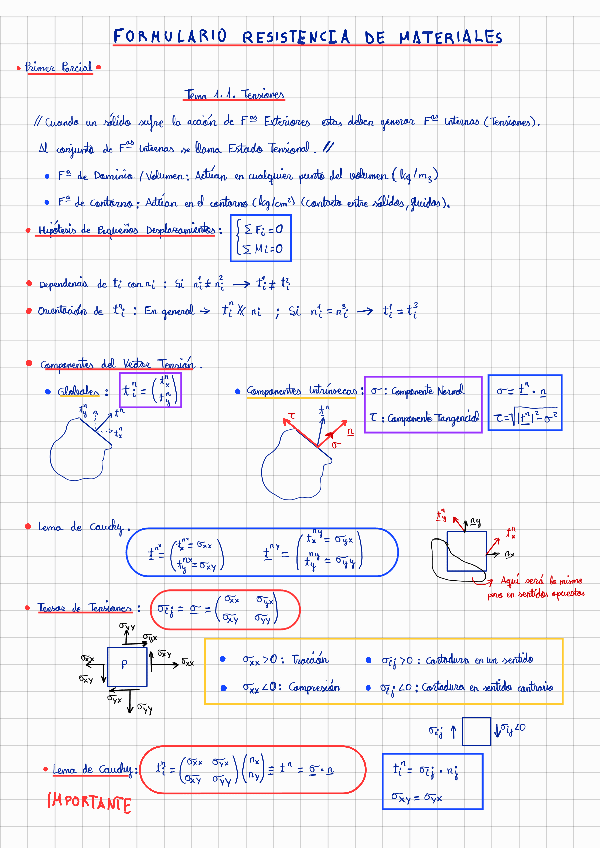 FORMULARIO RESISTENCIA DE MATERIALES
• Primer Parcial •
Tema 1.1. Tensiones
// Cuando un sólido sufre la acción de Fᵃˢ Exteriores estas deben generar Fᵃˢ Internas (Tensiones).
Al conjunto de Fᵃˢ Internas se llama Estado Tensional. //
• Fᵃ de Dominio / Volumen: Actúan en cualquier punto del volumen (kg/m3)
• Fᵃ de contorno: Actúan en el contorno (kg/cm²) (contacto entre sólidos, fluidos).
• Hipótesis de Pequeños Desplazamientos: { Σ Fi = 0
Σ Mi = 0
• Dependencia de ti con ni : Si ni¹ ≠ ni² → ti¹ ≠ ti²
• Orientación de tiⁿ : En general → tiⁿ ∦ ni ; Si ni¹ = ni³ → ti¹ = ti³
• Componentes del Vector Tensión.
• Globales : tiⁿ = (txⁿ tyⁿ)
• Componentes Intrínsecas: σ : Componente Normal
τ : Componente Tangencial
σ = tⁿ · n
τ = √|tⁿ|² - σ²
tyⁿ n tⁿ
txⁿ
τ tⁿ n
σ
• Lema de Cauchy.
tⁿˣ = (txⁿˣ = σxx
tyⁿˣ = σxy)
tⁿʸ = (txⁿʸ = σyx
tyⁿʸ = σyy)
tⁿ ny
txⁿ
nx
→ Aquí será lo mismo
pero en sentidos opuestos
• Tensor de Tensiones : σij = σ = (σxx σyx
σxy σyy)
σyy
σyx
σxx P σxy σxx
σxy
σyx
σyy
• σxx > 0 : Tracción
• σij > 0 : Cortadura en un sentido
• σxx < 0 : Compresión
• σij < 0 : Cortadura en sentido contrario
σij ↑ ↓ σij < 0
• Lema de Cauchy : tiⁿ = (σxx σyx
σxy σyy) (nx
ny) ≡ tⁿ = σ · n
IMPORTANTE
tiⁿ = σij · nj
σxy = σyx